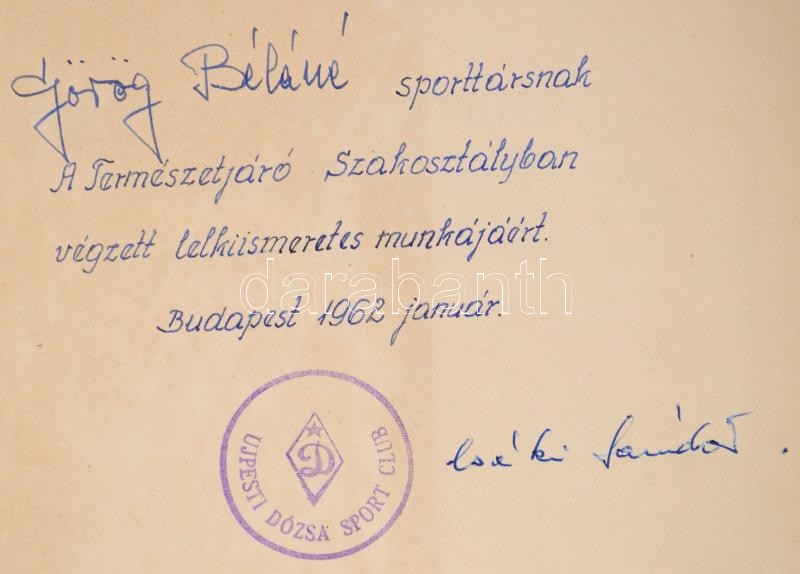 Görög Béláné sporttársnak
A Természetjáró Szakosztályban
végzett lelkiismeretes munkájáért.
darabanth
Budapest 1962 január.
Csáki Sándor.
D
UJPESTI DÓZSA SPORT CLUB